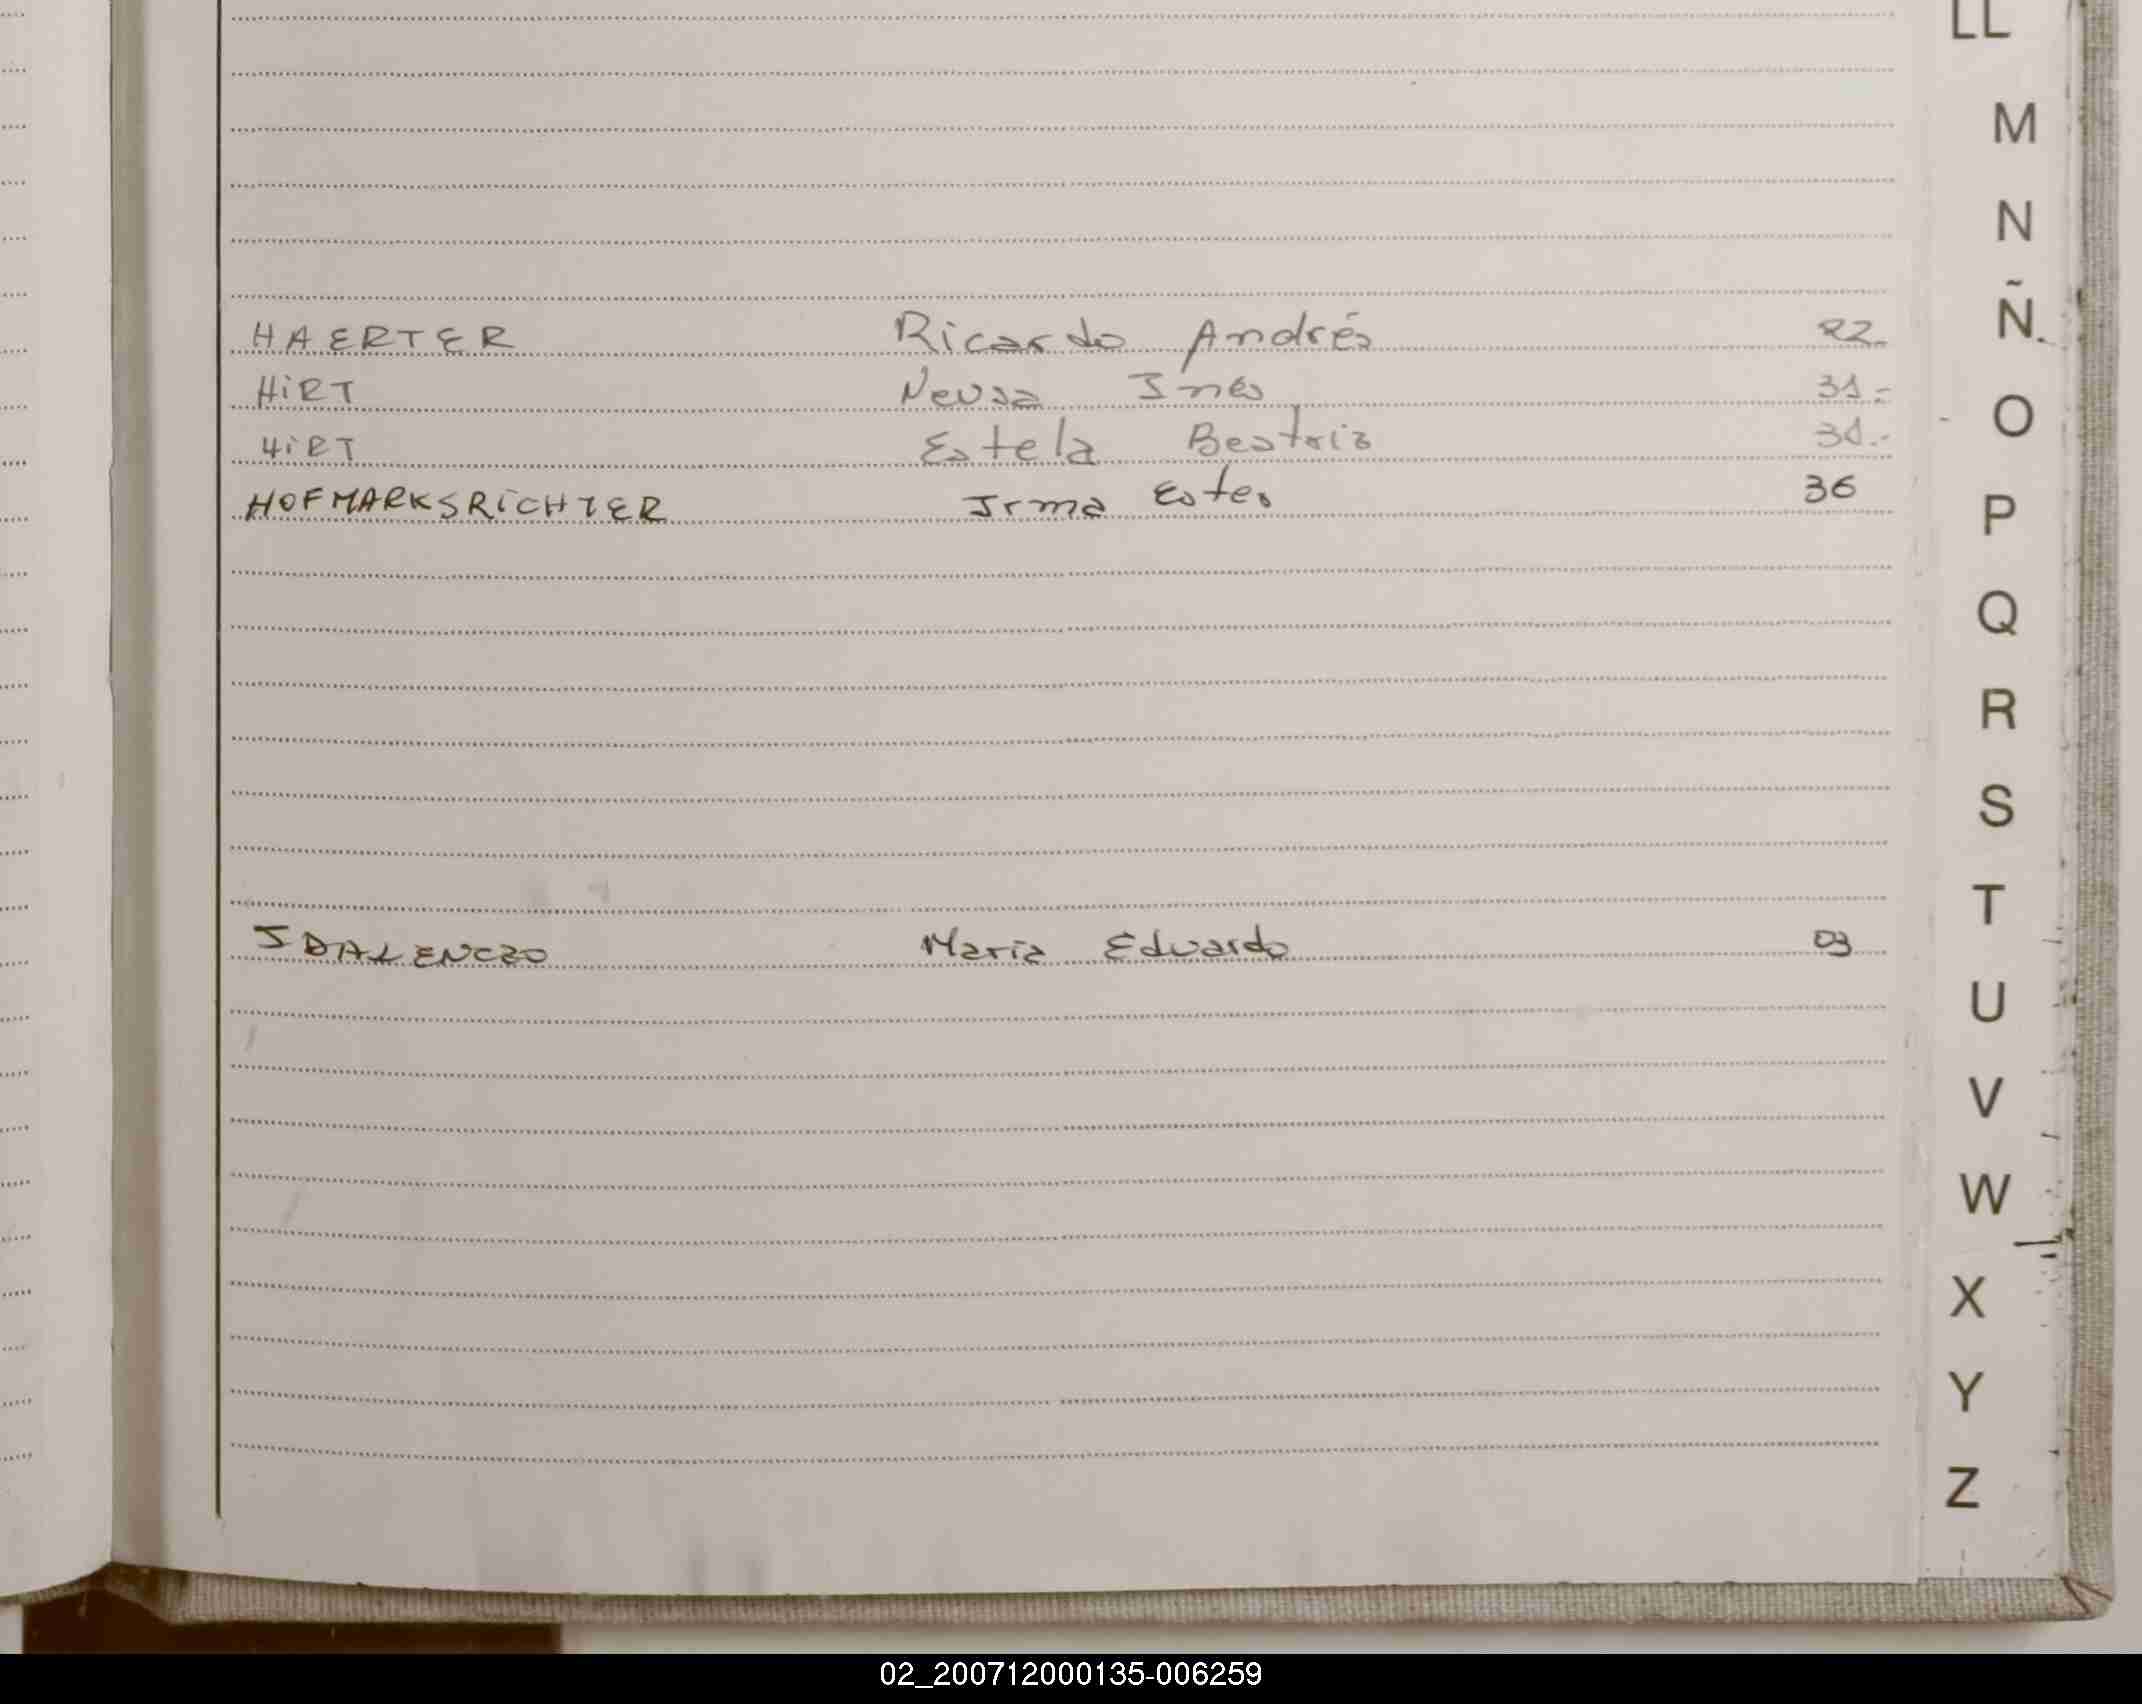 LL
M
N
Ñ
HAERTER Ricardo Andrés 22.-
HiRT Neusa Inés 31.-
O
HiRT Estela Beatriz 31.-
HOFMARKSRiCHTER Irma Ester 36
P
Q
R
S
T
IDALENCZO Maria Eduardo 03
U
V
W
X
Y
Z
02_200712000135-006259